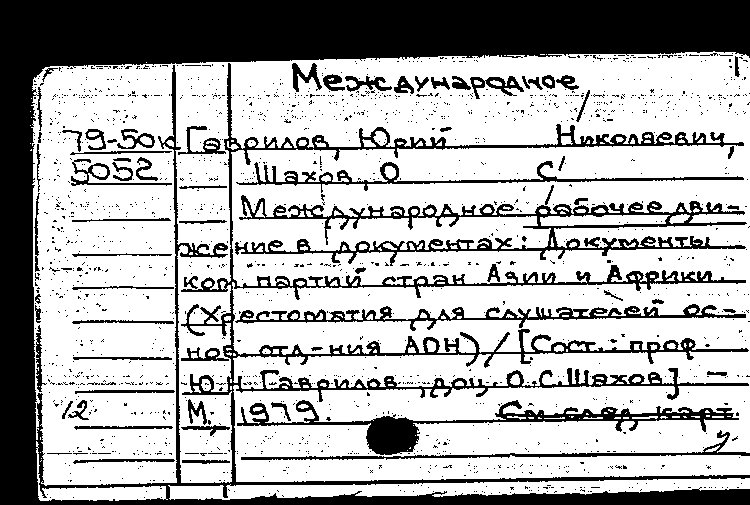 Международное
79-50к Гаврилов, Юрий Николаевич,
5052 Шахов, О С
Международное рабочее дви-
жение в документах: Документы
ком. партий стран Азии и Африки.
(Хрестоматия для слушателей ос-
нов. отд-ния АОН) / [Сост.: проф.
Ю.Н. Гаврилов, доц. О.С. Шахов] –
12 М., 1979. См след карт.